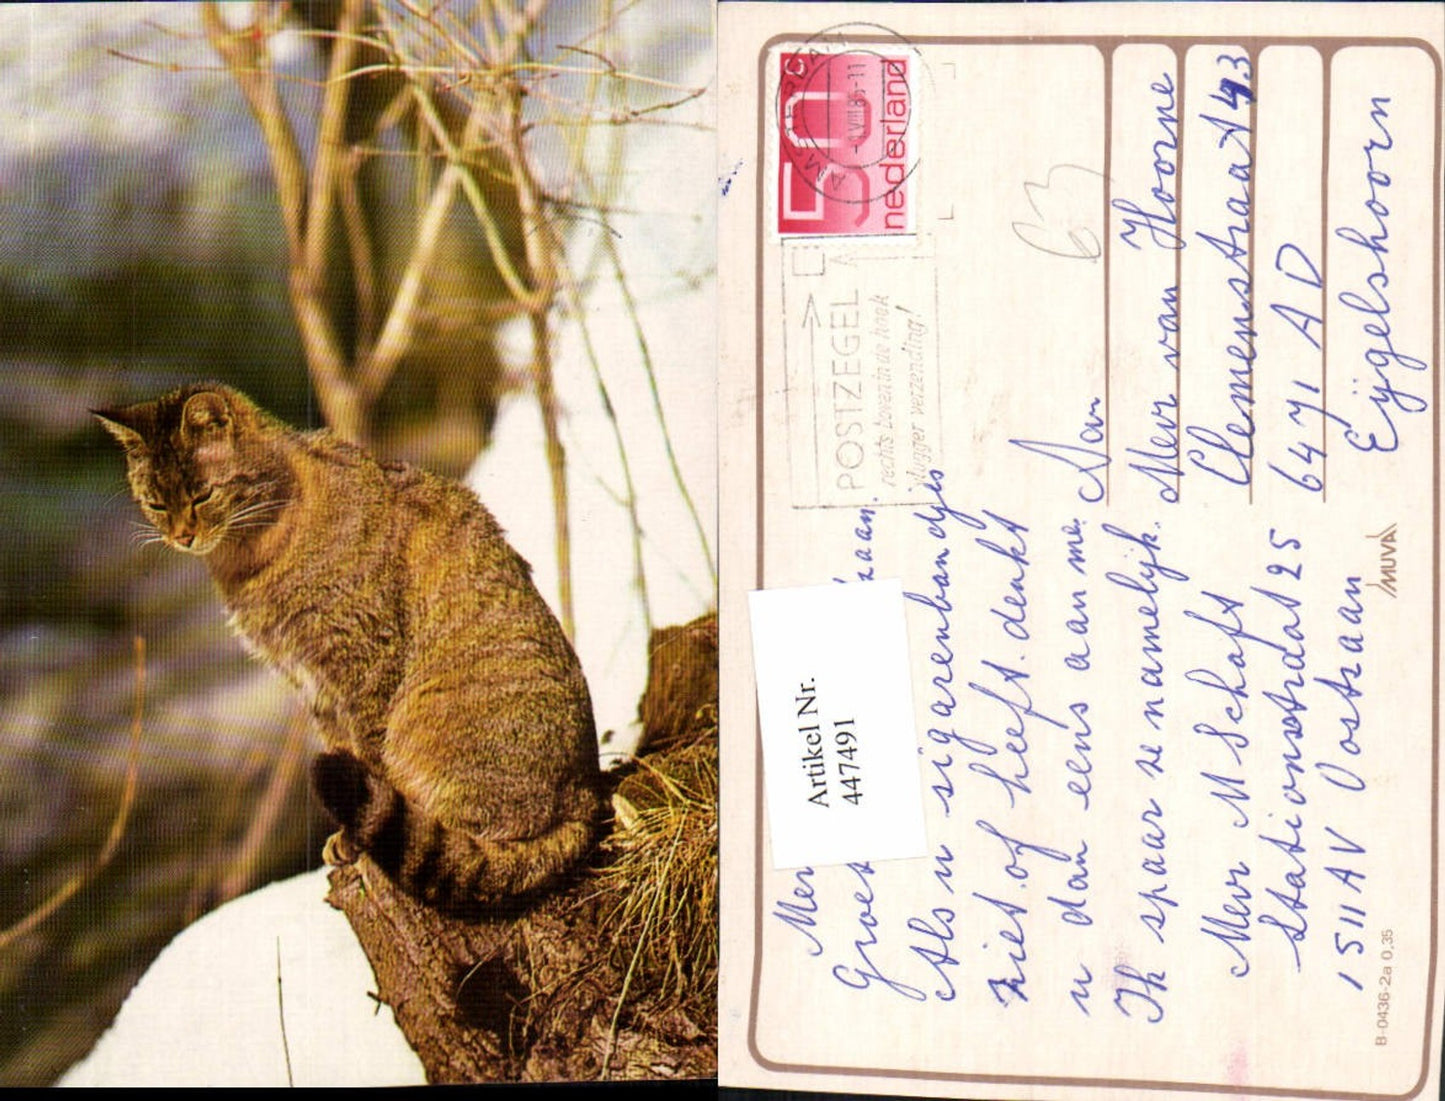 AMSTERDAM
-1.VIII.85-11
50c
nederland
POSTZEGEL
rechts boven in de hoek
vlugger verzending!
63
Artikel Nr.
447491
Groet
Als u sigarenbandjes
ziet of heeft. denkt
u dan eens aan me.
Ik spaar ze namelijk.
Mevr M Schaft
Stationsstraat 25
1511 AV Oostzaan
Aan
Mevr van Hoorne
Clemensstraat 43
6471 AD
Eijgelshoorn
MUVA
B-0436-2a 0.35